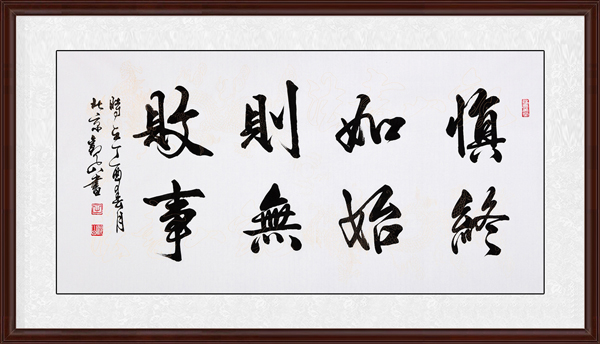 慎終
如始
則無
敗事
時在丁酉春月
北京 書